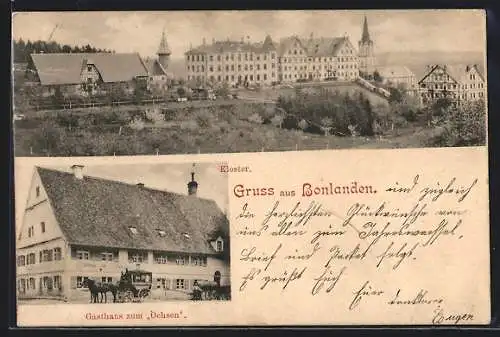 Kloster.
Gruss aus Bonlanden. und zugleich
die herzlichsten Glückwünsche von
uns allen zum Jahreswechsel
Brief und Packet folgt.
Es grüßt Euch
Euer dankbarer
Eugen
Gasthaus zum „Ochsen“.